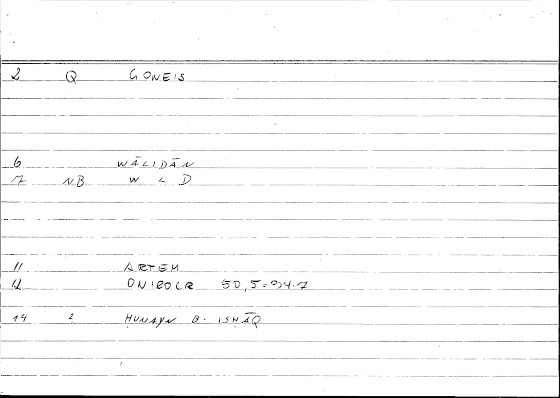 2 Q GONEIS
6 WĀLIDĀN
7 NB W L D
11 ARTEM
12 ONIROCR 50,5=94.7
14 2 ḤUNAYN B. ISḤĀQ